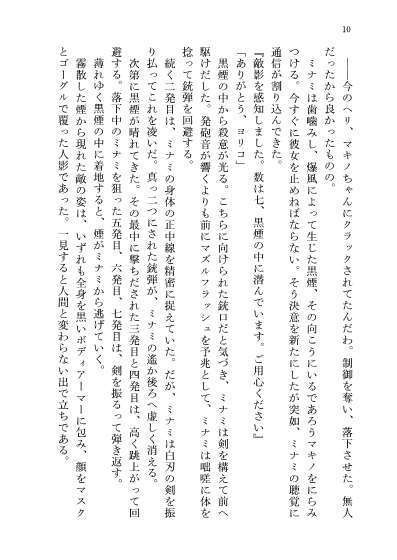 10
――今のヘリ、マキノちゃんにクラックされてたんだわ。制御を奪い、落下させた。無人
だったから良かったものの。
ミナミは歯噛みし、爆風によって生じた黒煙、その向こうにいるであろうマキノをにらみ
つける。今すぐに彼女を止めねばならない。そう決意を新たにしたが突如、ミナミの聴覚に
通信が割り込んできた。
『敵影を感知しました。数は七、黒煙の中に潜んでいます。ご用心ください』
「ありがとう、ヨリコ」
黒煙の中から殺意が光る。こちらに向けられた銃口だと気づき、ミナミは剣を構えて前へ
駆けだした。発砲音が響くよりも前にマズルフラッシュを予兆として、ミナミは咄嗟に体を
捻って銃弾を回避する。
続く二発目は、ミナミの身体の正中線を精密に捉えていた。だが、ミナミは白刃の剣を振
り払ってこれを凌いだ。真っ二つにされた銃弾が、ミナミの遥か後ろへ虚しく消える。
次第に黒煙が晴れてきた。その最中に撃ちだされた三発目と四発目は、高く跳上がって回
避する。落下中のミナミを狙った五発目、六発目、七発目は、剣を振るって弾き返す。
薄れゆく黒煙の中に着地すると、煙がミナミから逃げていく。
霧散した煙から現れた敵の姿は、いずれも全身を黒いボディアーマーに包み、顔をマスク
とゴーグルで覆った人影であった。一見すると人間と変わらない出で立ちである。